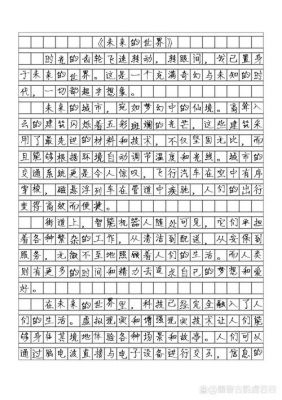 《未来的世界》
时光的齿轮飞速转动，转眼间，我已置身
于未来的世界。这是一个充满奇幻与未知的时
代，一切都超乎想象。
未来的城市，宛如梦幻中的仙境。高耸入
云的建筑闪烁着五彩斑斓的光芒，这些建筑采
用了最先进的材料和技术，不仅坚固无比，而
且能够根据环境自动调节温度和光线。城市的
交通系统更是令人惊叹，飞行汽车在空中有序
穿梭，磁悬浮列车在管道中疾驰，人们的出行
变得高效而便捷。
街道上，智能机器人随处可见，它们承担
着各种繁杂的工作，从清洁到配送，从安保到
服务，无微不至地照顾着人们的生活。而人类
则有更多的时间和精力去追求自己的梦想和爱
好。
在未来的世界里，科技已经完全融入了人
们的生活。虚拟现实和增强现实技术让人们能
够身临其境地体验各种场景和故事。人们可以
通过脑电波直接与电子设备进行交互，信息的